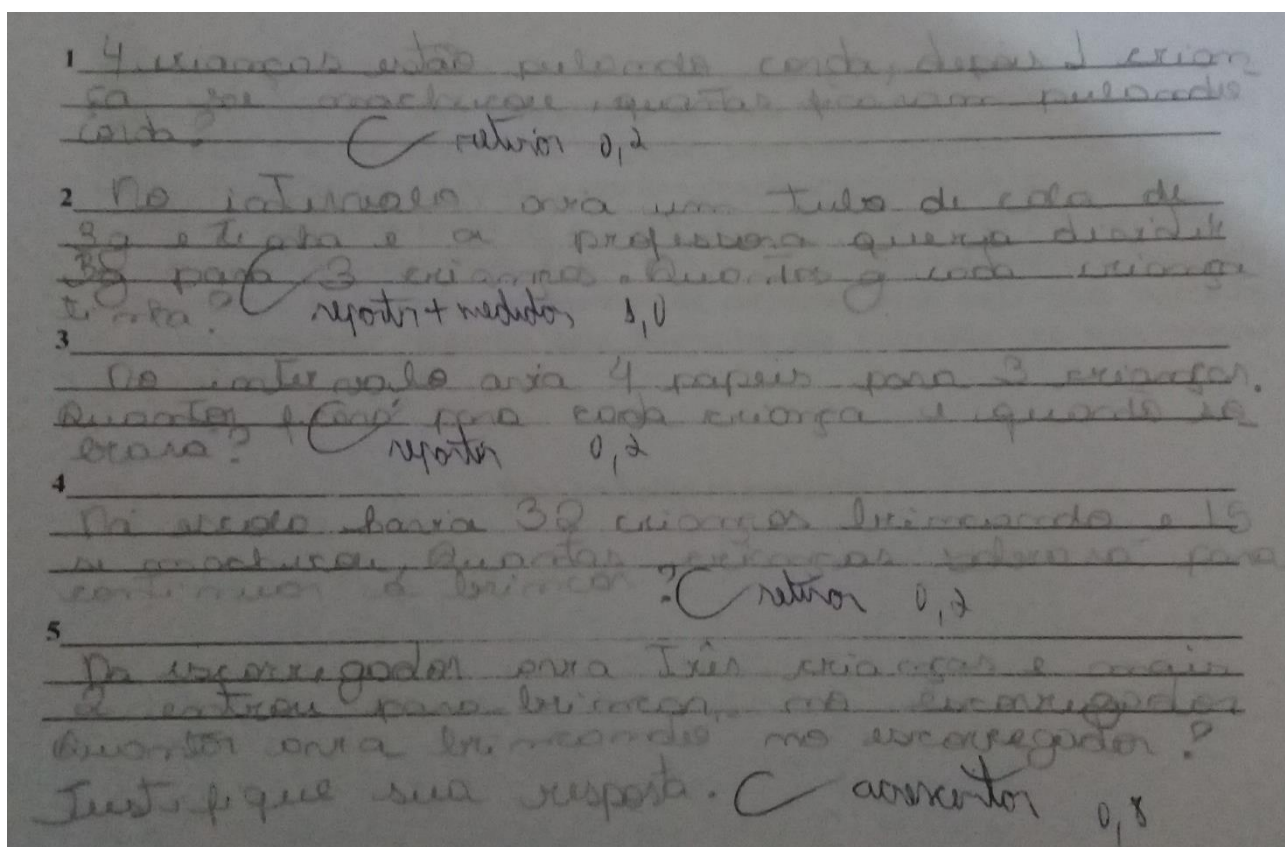 1 4 crianças estão pulando corda, depois 1 crian
ça se machucou, quantas ficaram pulando
corda? C retirar 0,2
2 No intervalo avia um tubo de cola de
3g e tinha e a professora queria dividir
3g para 3 crianças. Quantos g cada criança
tinha? C repartir + medidas 1,0
3
No intervalo avia 4 papeis para 3 crianças.
Quantos para cada criança e quando so
brara? C repartir 0,2
4
Na escola havia 32 crianças brincando e 15
se machucou. Quantas crianças para
continuar a brincar? C retirar 0,2
5
No escorregador avia Três crianças e mais
2 entrou para brincar no escorregador
Quantos avia brincando no escorregador?
Justifique sua resposta. C acrescentar 0,8